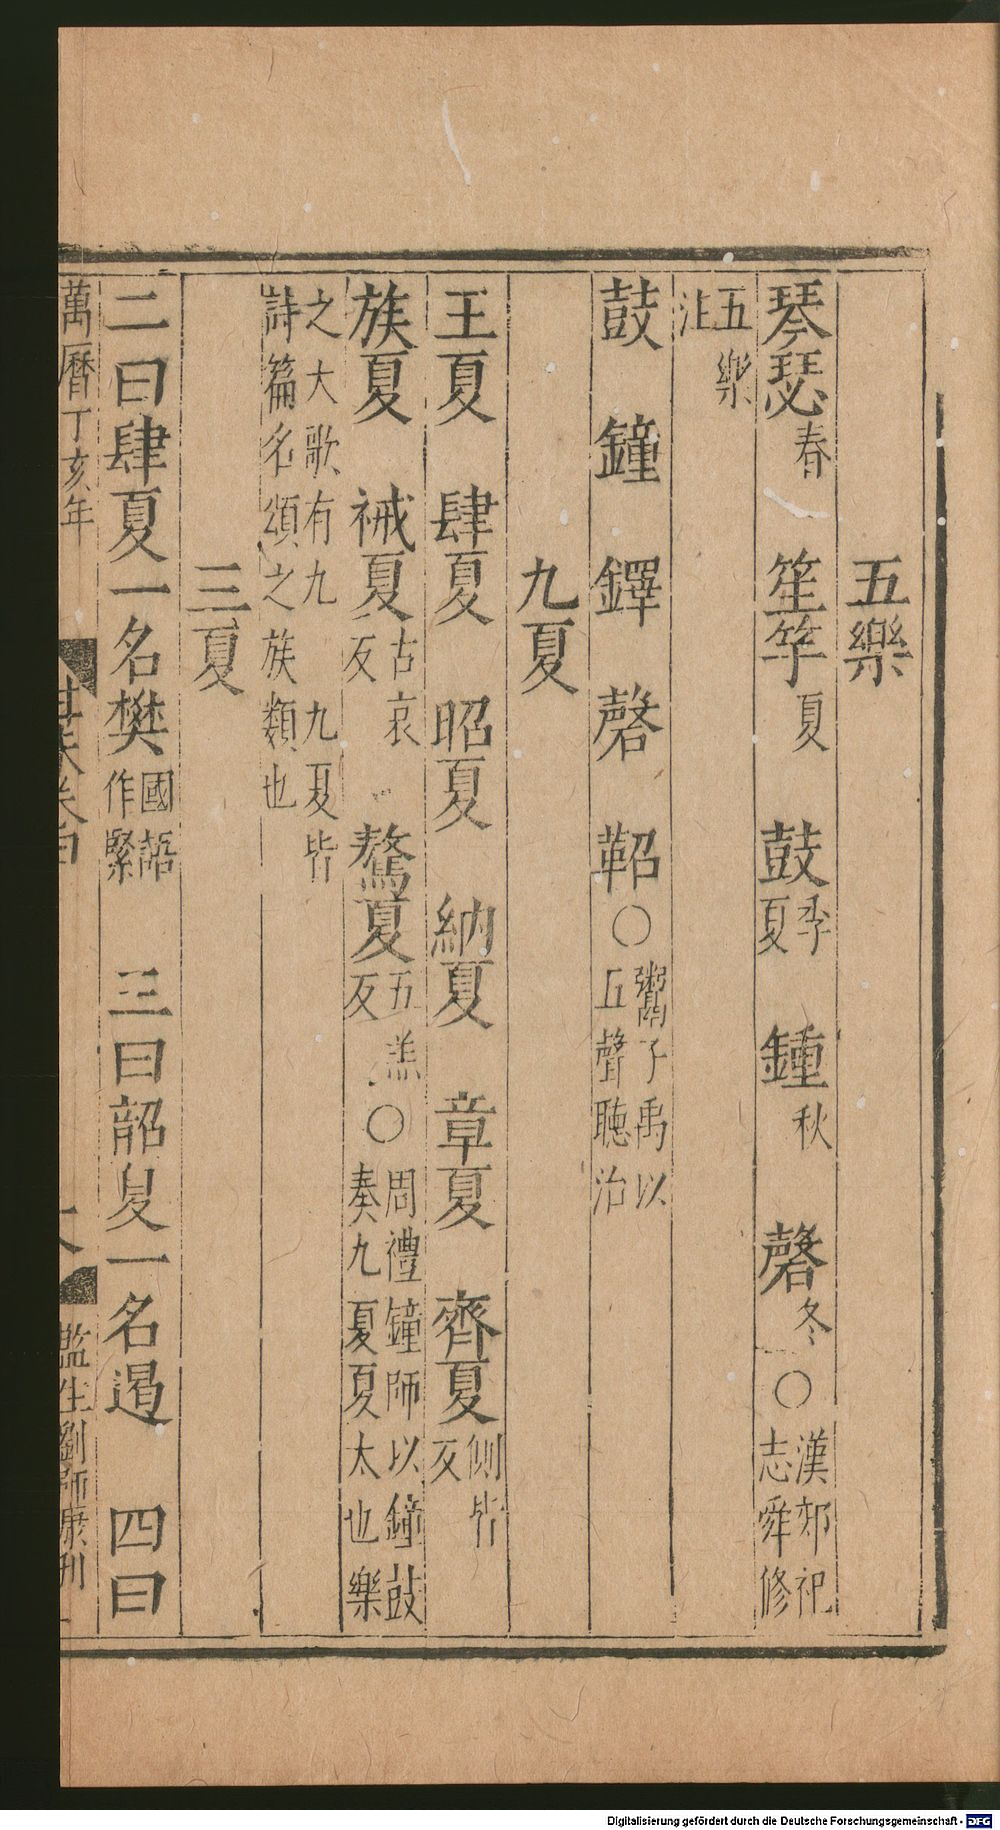 五樂
琴瑟春 笙竽夏 鼓季夏 鍾秋 磬冬○漢郊祀志舜修
五樂注
鼓 鐘 鐸 磬 鞀○鬻子禹以五聲聽治
九夏
王夏 肆夏 昭夏 納夏 章夏 齊夏側皆反
族夏 祴夏古哀反 驁夏五羔反○周禮鐘師以鐘鼓奏九夏夏大也樂
之大歌有九九夏皆詩篇名頌之族類也
三夏
二曰肆夏一名樊國語作繁 三曰韶夏一名遏 四曰
萬曆丁亥年 監生劉師康刊
Digitalisierung gefördert durch die Deutsche Forschungsgemeinschaft - DFG